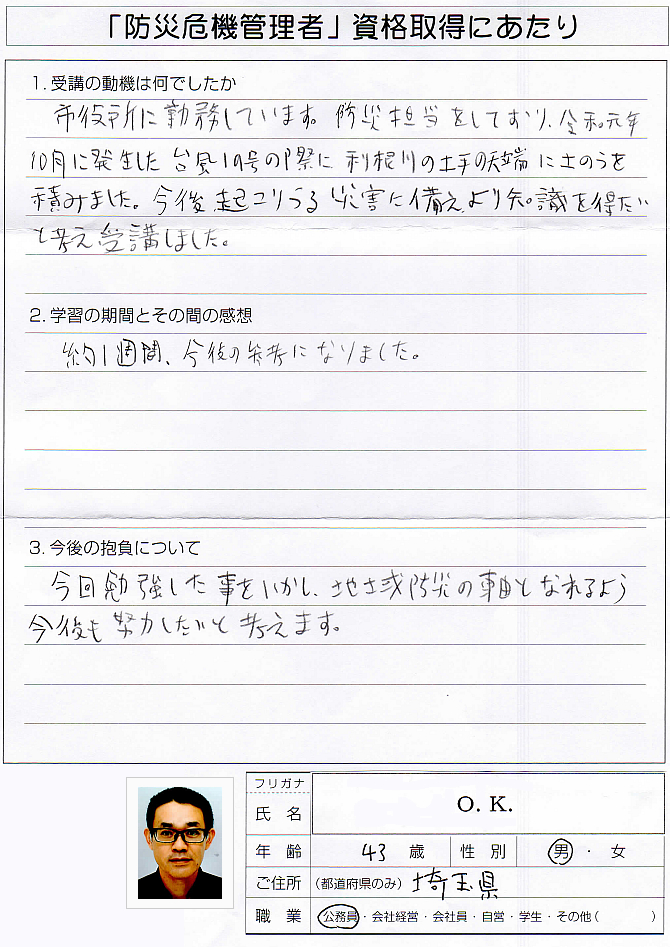 「防災危機管理者」資格取得にあたり
1. 受講の動機は何でしたか
市役所に勤務しています。防災担当をしており、令和元年
10月に発生した台風19号の際に利根川の土手の天端に土のうを
積みました。今後起こりうる災害に備え、より知識を得たい
と考え受講しました。
2. 学習の期間とその間の感想
約1週間、今後の参考になりました。
3. 今後の抱負について
今回勉強した事をいかし、地域防災の軸となれるよう
今後も努力したいと考えます。
フリガナ
氏 名 O. K.
年 齢 43 歳 性 別 男 ・ 女
ご住所 (都道府県のみ) 埼玉県
職 業 公務員・会社経営・会社員・自営・学生・その他 ( )